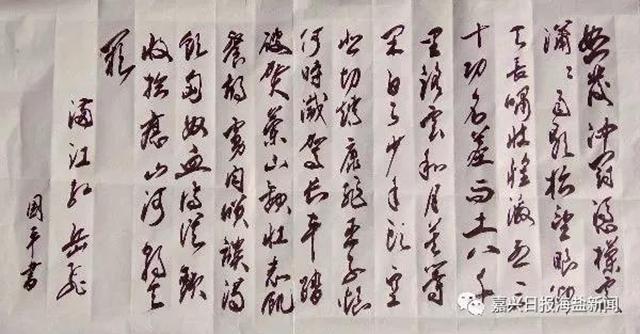 怒发冲冠凭栏处
潇潇雨歇抬望眼仰
天长啸壮怀激烈三
十功名尘与土八千
里路云和月莫等
闲白了少年头空
悲切靖康耻臣子恨
何时灭驾长车踏
破贺兰山缺壮志饥
餐胡虏肉笑谈渴
饮匈奴血待从头
收拾旧山河朝天
阙
满江红 岳飞
国平书
嘉兴日报海盐新闻